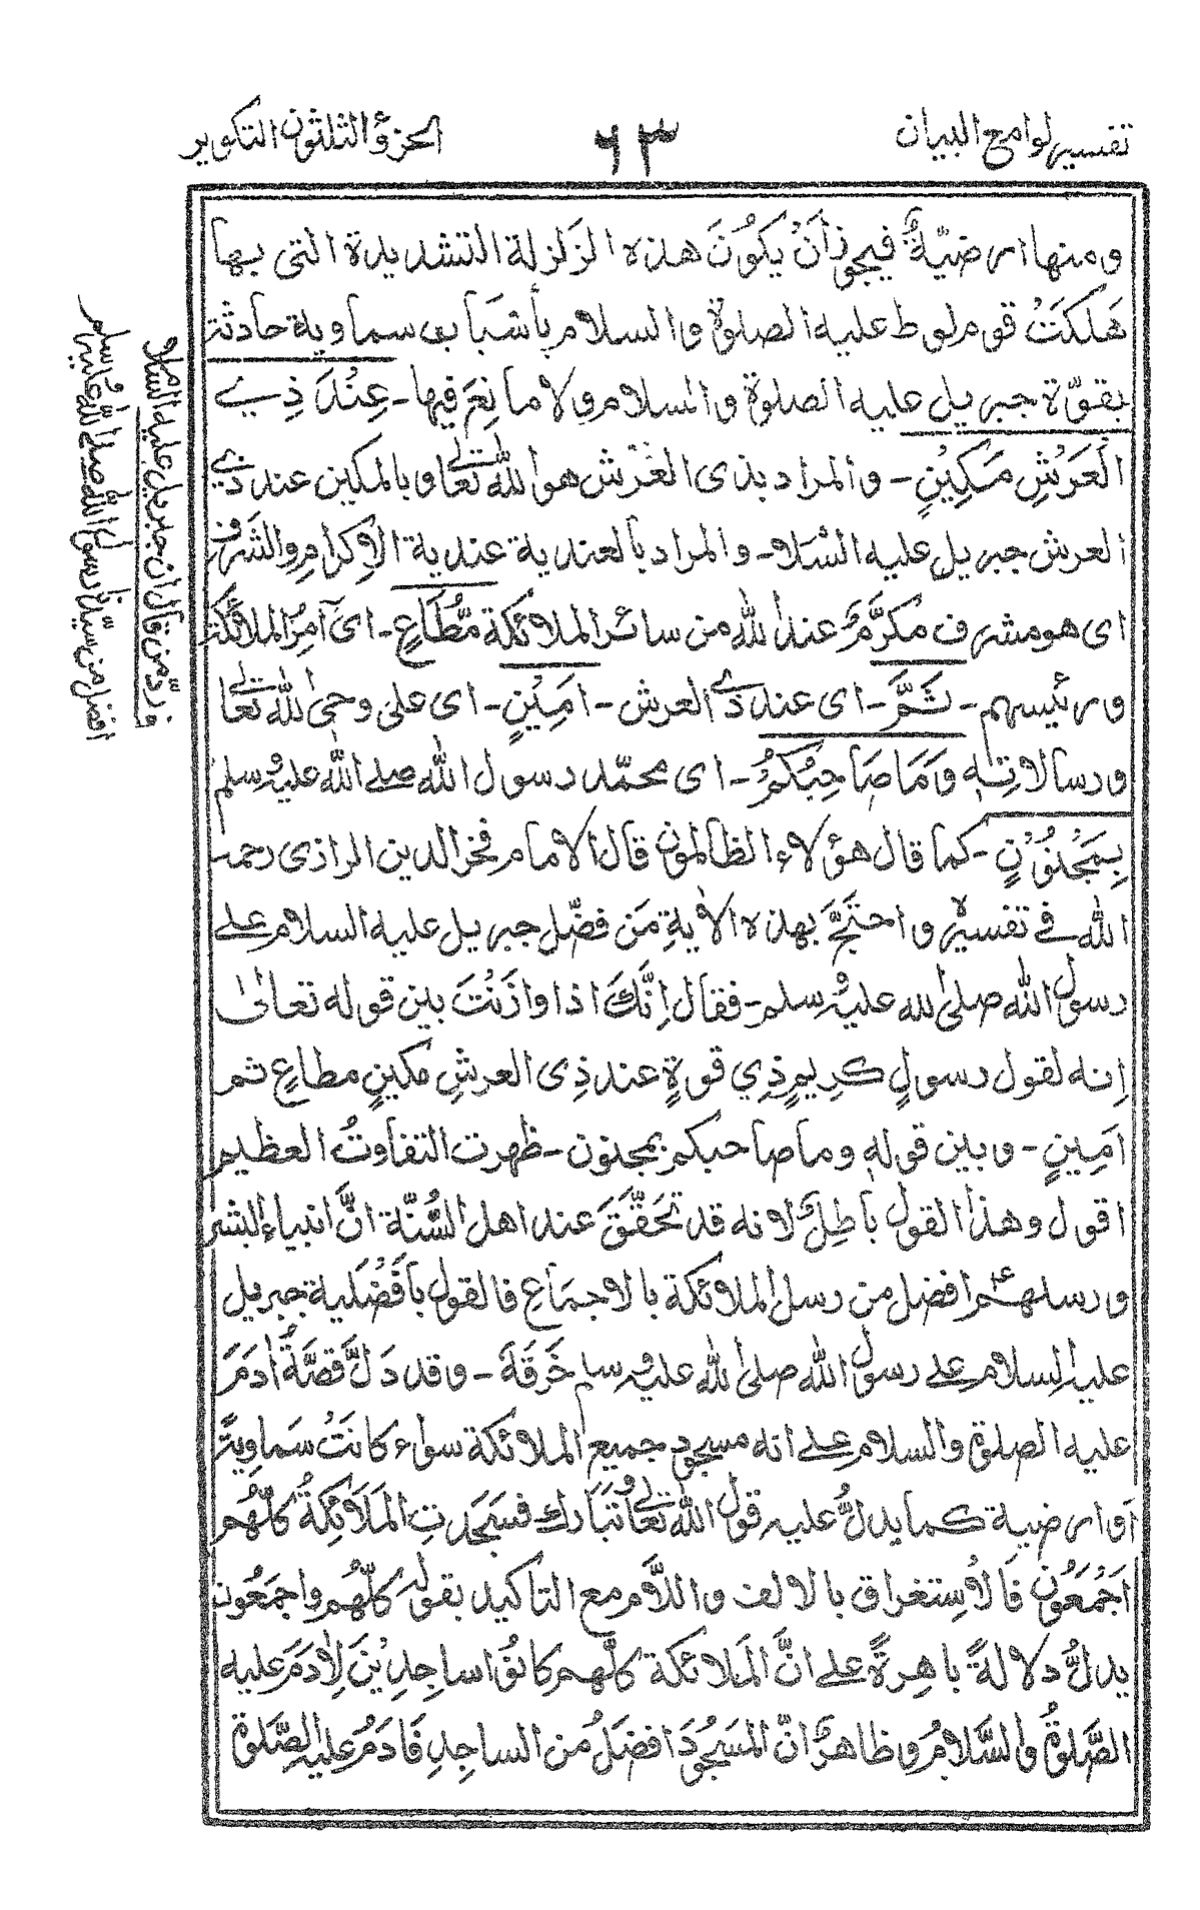 تفسير لوامع البيان ٦٣ الجزء الثلثون التكوير
ومنها ارضيّةٌ فيجوز أنْ يكوْنَ هذه الزلزلة الشديدة التى بها
هَلكتْ قوم لوط عليه الصلوة والسلام بأسْبَاب سماوية حادثة
بقوّة جبريل عليه الصلوة والسلام ولا مانِعَ فيها - عِنْدَ ذِي
الْعَرْشِ مَكِيْنٍ - والمراد بذى العرْش هو الله تعالى وبالمكين عند ذي
العرش جبريل عليه السّلام - والمراد بالعندية عندية الاِكرام والشَرف
اى هو مشرف مكرَّمٌ عند الله من سائر الملائكة مُّطَاعٍ - اىْ آمِرُ الملائكة
ورئيسهم - ثَمَّ - اى عند ذي العرش - امِيْنٍ - اى على وحى الله تعالى
ورسالاتِه وَمَا صَاحِبُكُمْ - اى محمّد رسول الله صلى الله عليه وسلم
بِمَجْنُوْنٍ - كما قال هؤلاء الظالمون قال الامام فخر الدين الرازى رحمه
الله فى تفسيره واحتجَّ بهذه الاٰية مَن فضّل جبريل عليه السلام على
رسول الله صلى الله عليه وسلم - فقال اِنَّكَ اذا وازَنْتَ بين قوله تعالىٰ
اِنه لقول رسولٍ كريمٍ ذِي قوةٍ عند ذِى العرشِ مكينٍ مطاعٍ ثم
امِينٍ - وبين قوله وما صاحبكم بمجنون - ظهرت التفاوتُ العظيم
اقول وهذا القول باطِلٌ لانه قد تحَقَّقَ عند اهل السُّنّة انَّ انبياء البشر
ورسلهم افضل من رسل الملائكة بالاجمَاعِ فالقول بأفْضَلية جبريل
عليه السلام على رسول الله صلى الله عليه وسلم خَرَقَهٗ - وقد دَلَّ قصَّةُ اٰدَمَ
عليه الصلوة والسلام على انه مسجود جميع الملائكة سواء كانتْ سَماويةً
اَو ارضية كما يدلُّ عليه قول الله تعالى تبَارك فسَجَدتِ الْمَلَائِكَةُ كلُّهُم
اَجْمَعُوْن فَالاْسِتغراق بالالف واللاَّم مع التأكيد بقوله كلُّهُم واجمَعُون
يدلُّ دلالةً باهِرةً على انَّ المَلائكة كلَّهم كانُوا ساجِدِيْنَ لِاٰدَمَ عليه
الصَّلوةُ والسَّلامُ وظاهرٌ انّ المَسجُوْدَ افضَلُ من الساجِدِ فَاٰدَمُ عليه الصَّلوة
فردّ من قال ان جبريل عليه السّلام
افضل من سيّدنا رسول الله صلى الله عليه وسلم